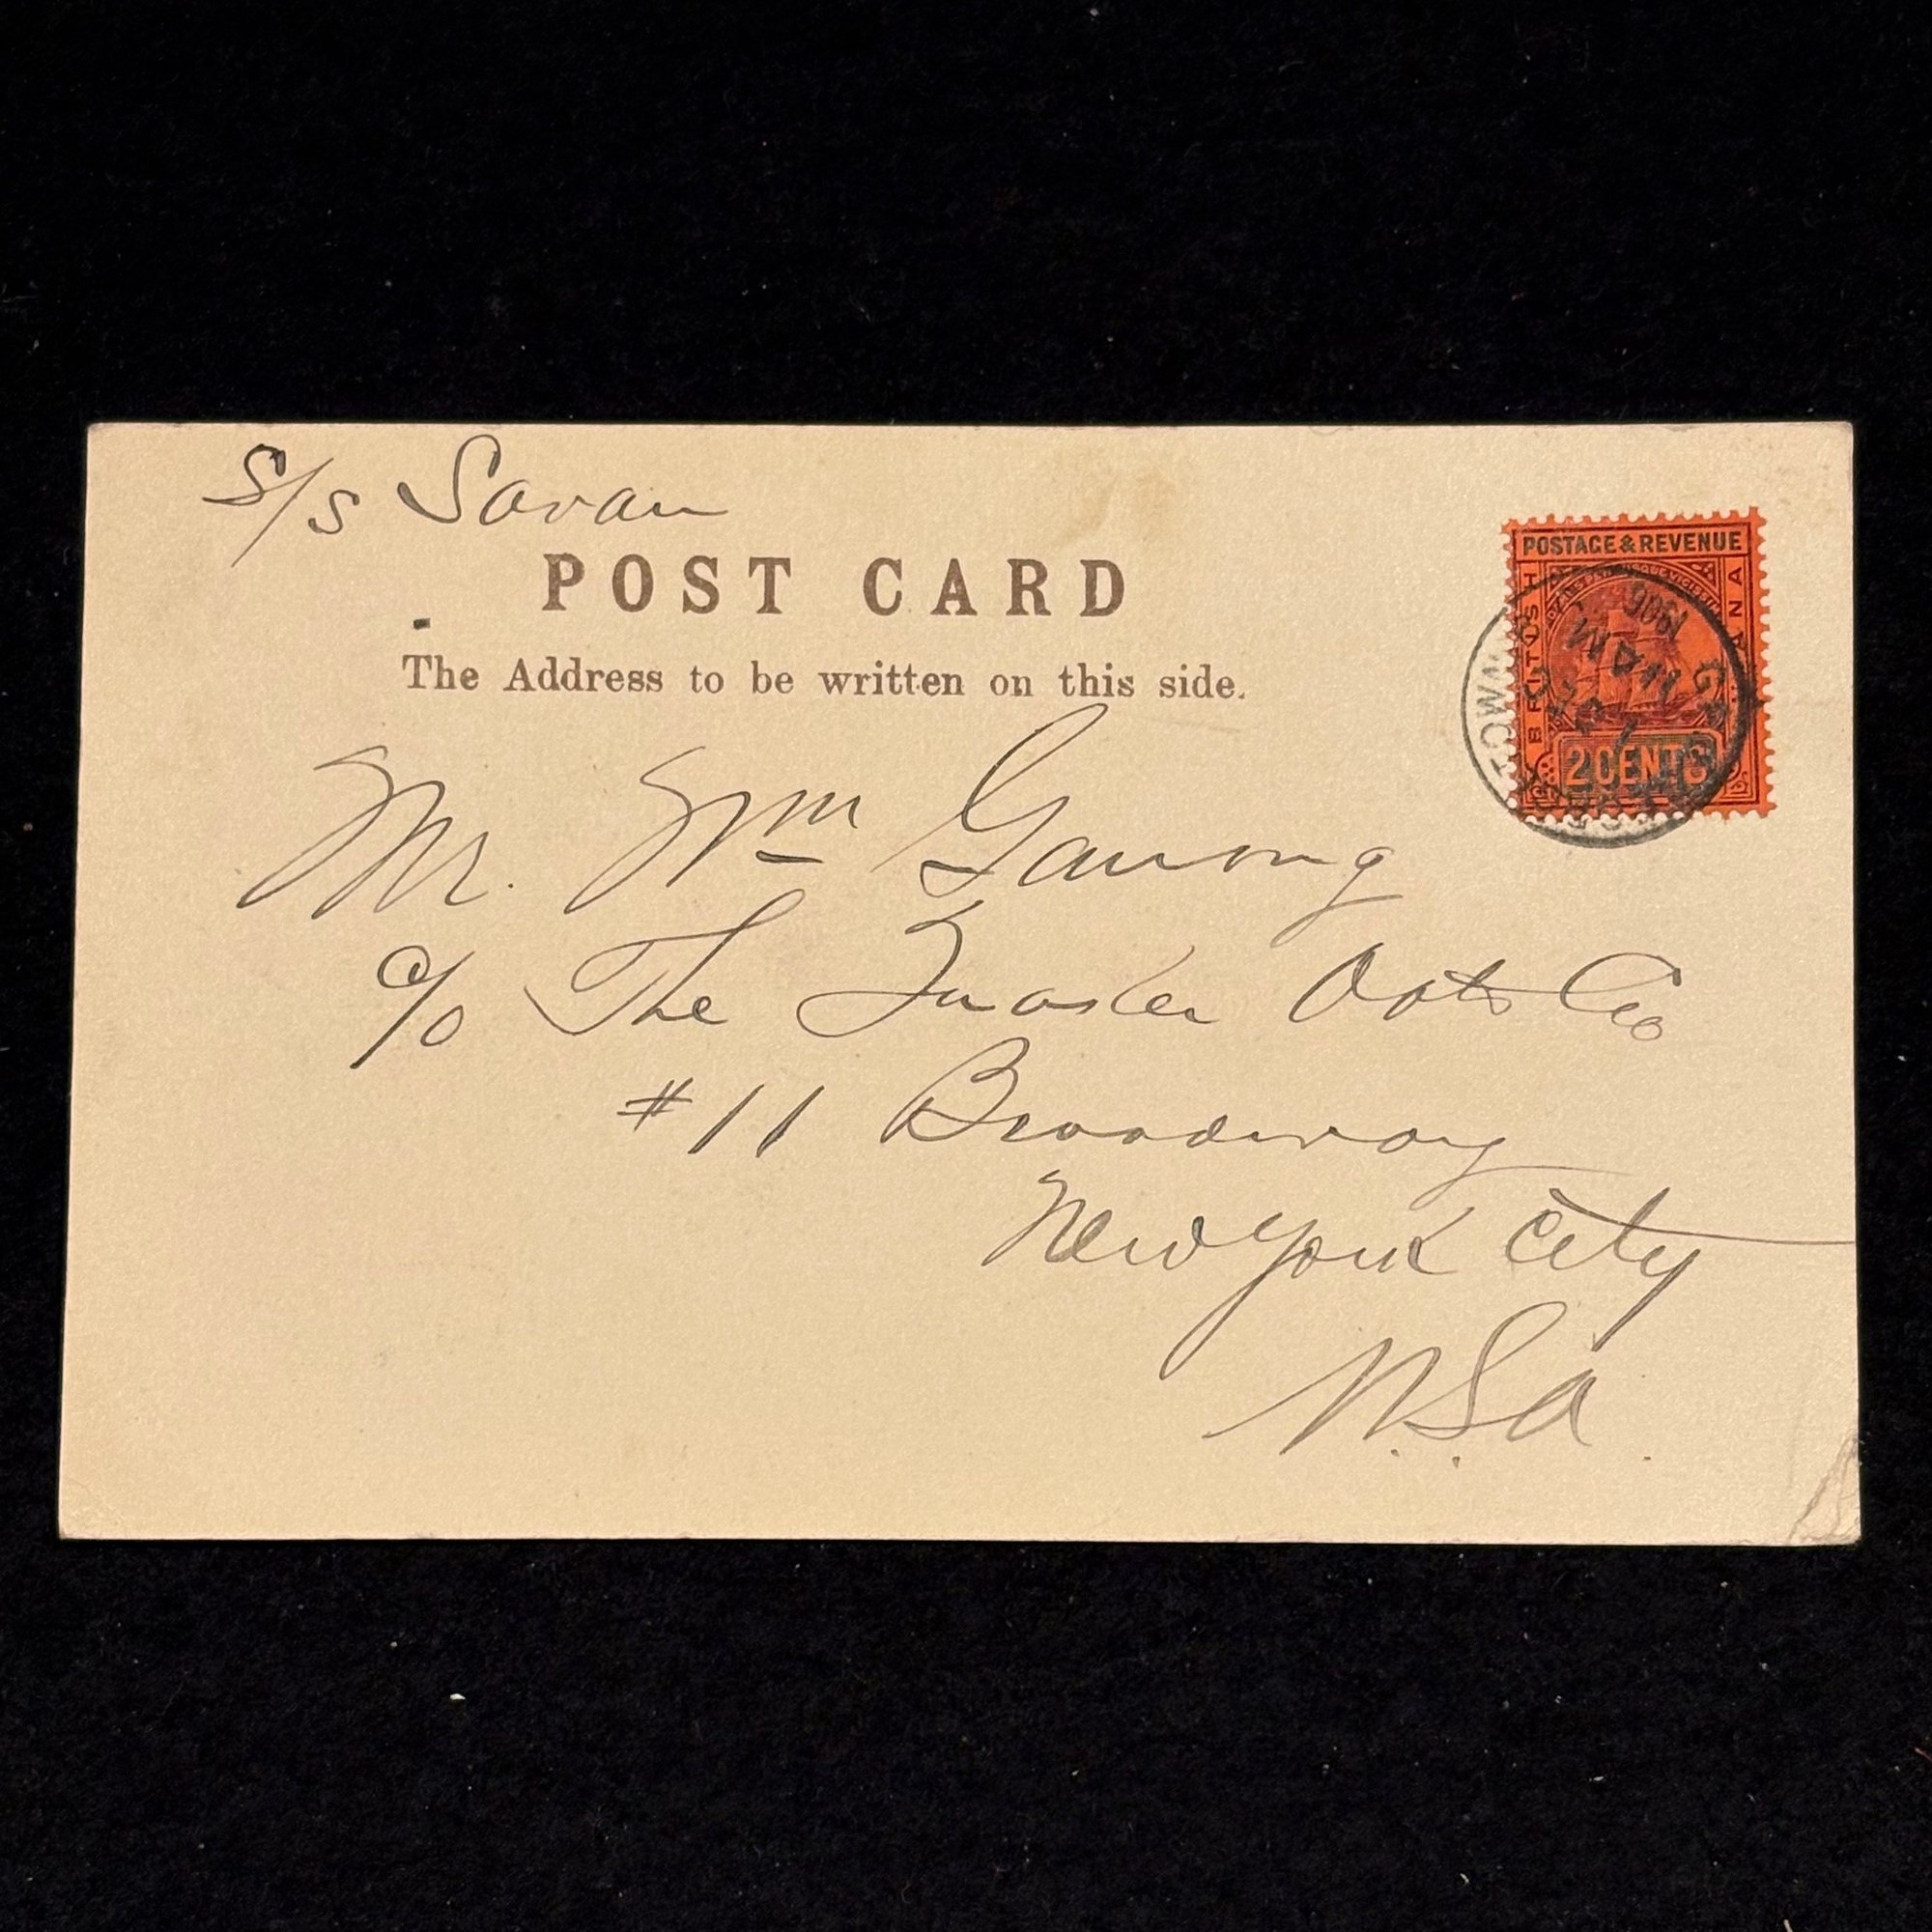 S/s Savan
POST CARD
The Address to be written on this side.
Mr. Wm Ganong
c/o The Quaker Oats Co
#11 Broadway
New York City
U.S.A.
POSTAGE & REVENUE
BRITISH
GUIANA
2 CENTS
GEORGETOWN
11 AM
1906